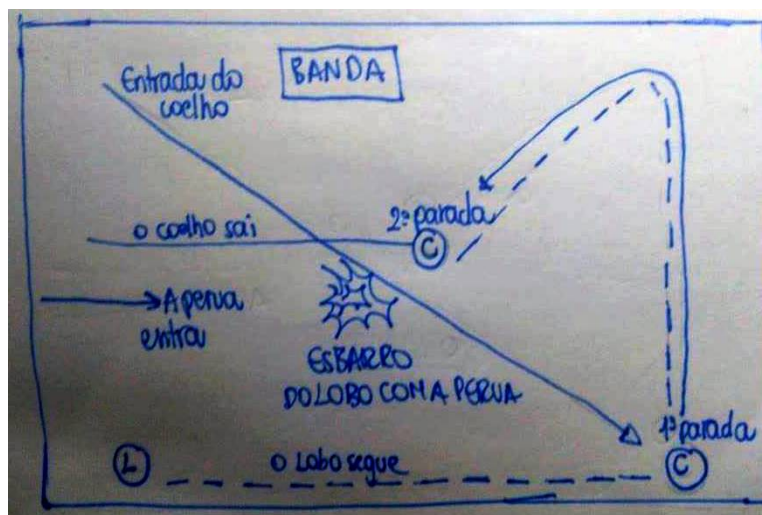 Entrada do
coelho
BANDA
2ª parada
o coelho sai
C
A perua
entra
ESBARRO
DO LOBO COM A PERUA
1ª parada
L
o Lobo segue
C